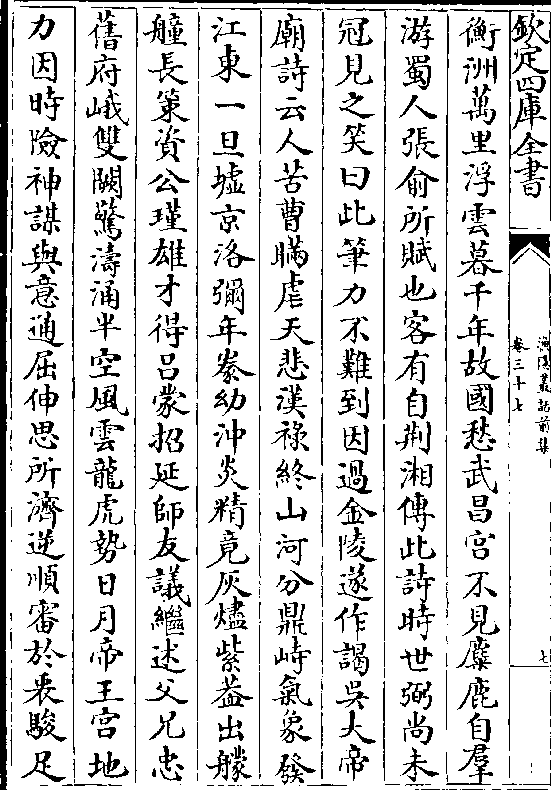 欽定四庫全書
漁隱叢話前集
卷三十七
七
衡洲萬里浮雲暮千年故國愁武昌宮不見麋鹿自羣
游蜀人張俞所賦也客有自荆湘傳此詩時世弼尚未
冠見之笑曰此筆力不難到因過金陵遂作謁吳大帝
廟詩云人苦曹瞞虐天悲漢祿終山河分鼎峙氣象發
江東一旦墟京洛彌年豢幼沖炎精竟灰燼紫蓋出艨
艟長策資公瑾雄才得吕蒙招延師友議繼述父兄忠
舊府峨雙闕驚濤涌半空風雲龍虎勢日月帝王宮地
力因時險神謀與意通屈伸思所濟逆順審於衷駿足